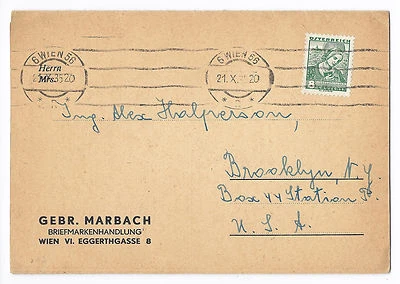 6 WIEN 56
21.X.35 20
6 WIEN 56
21.X. 20
ÖSTERREICH
8
Herrn
Mrs.
Ing. Alex Halperson,
Brooklyn, N.Y.
Box 44 Station P.
U. S. A.
GEBR. MARBACH
BRIEFMARKENHANDLUNG
WIEN VI. EGGERTHGASSE 8